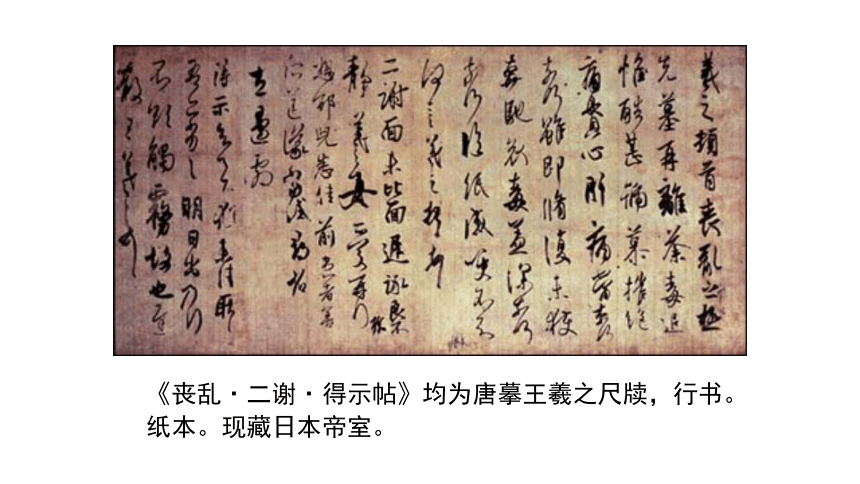 羲之頓首喪亂之極
先墓再離荼毒追
惟酷甚號慕摧絕
痛貫心肝痛當奈何
奈何雖即脩復未獲
奔馳哀毒益深奈何
奈何臨紙感哽不知
何言羲之頓首頓首
二謝面未比面遲詠良不
靜羲之女愛再拜
想邵兒悉佳前患者善
左邊劇
得示知足下猶未佳耿耿
吾亦劣劣明日出乃行
不欲觸霧故也遲
散王羲之頓首
《丧乱·二谢·得示帖》均为唐摹王羲之尺牍，行书。
纸本。现藏日本帝室。